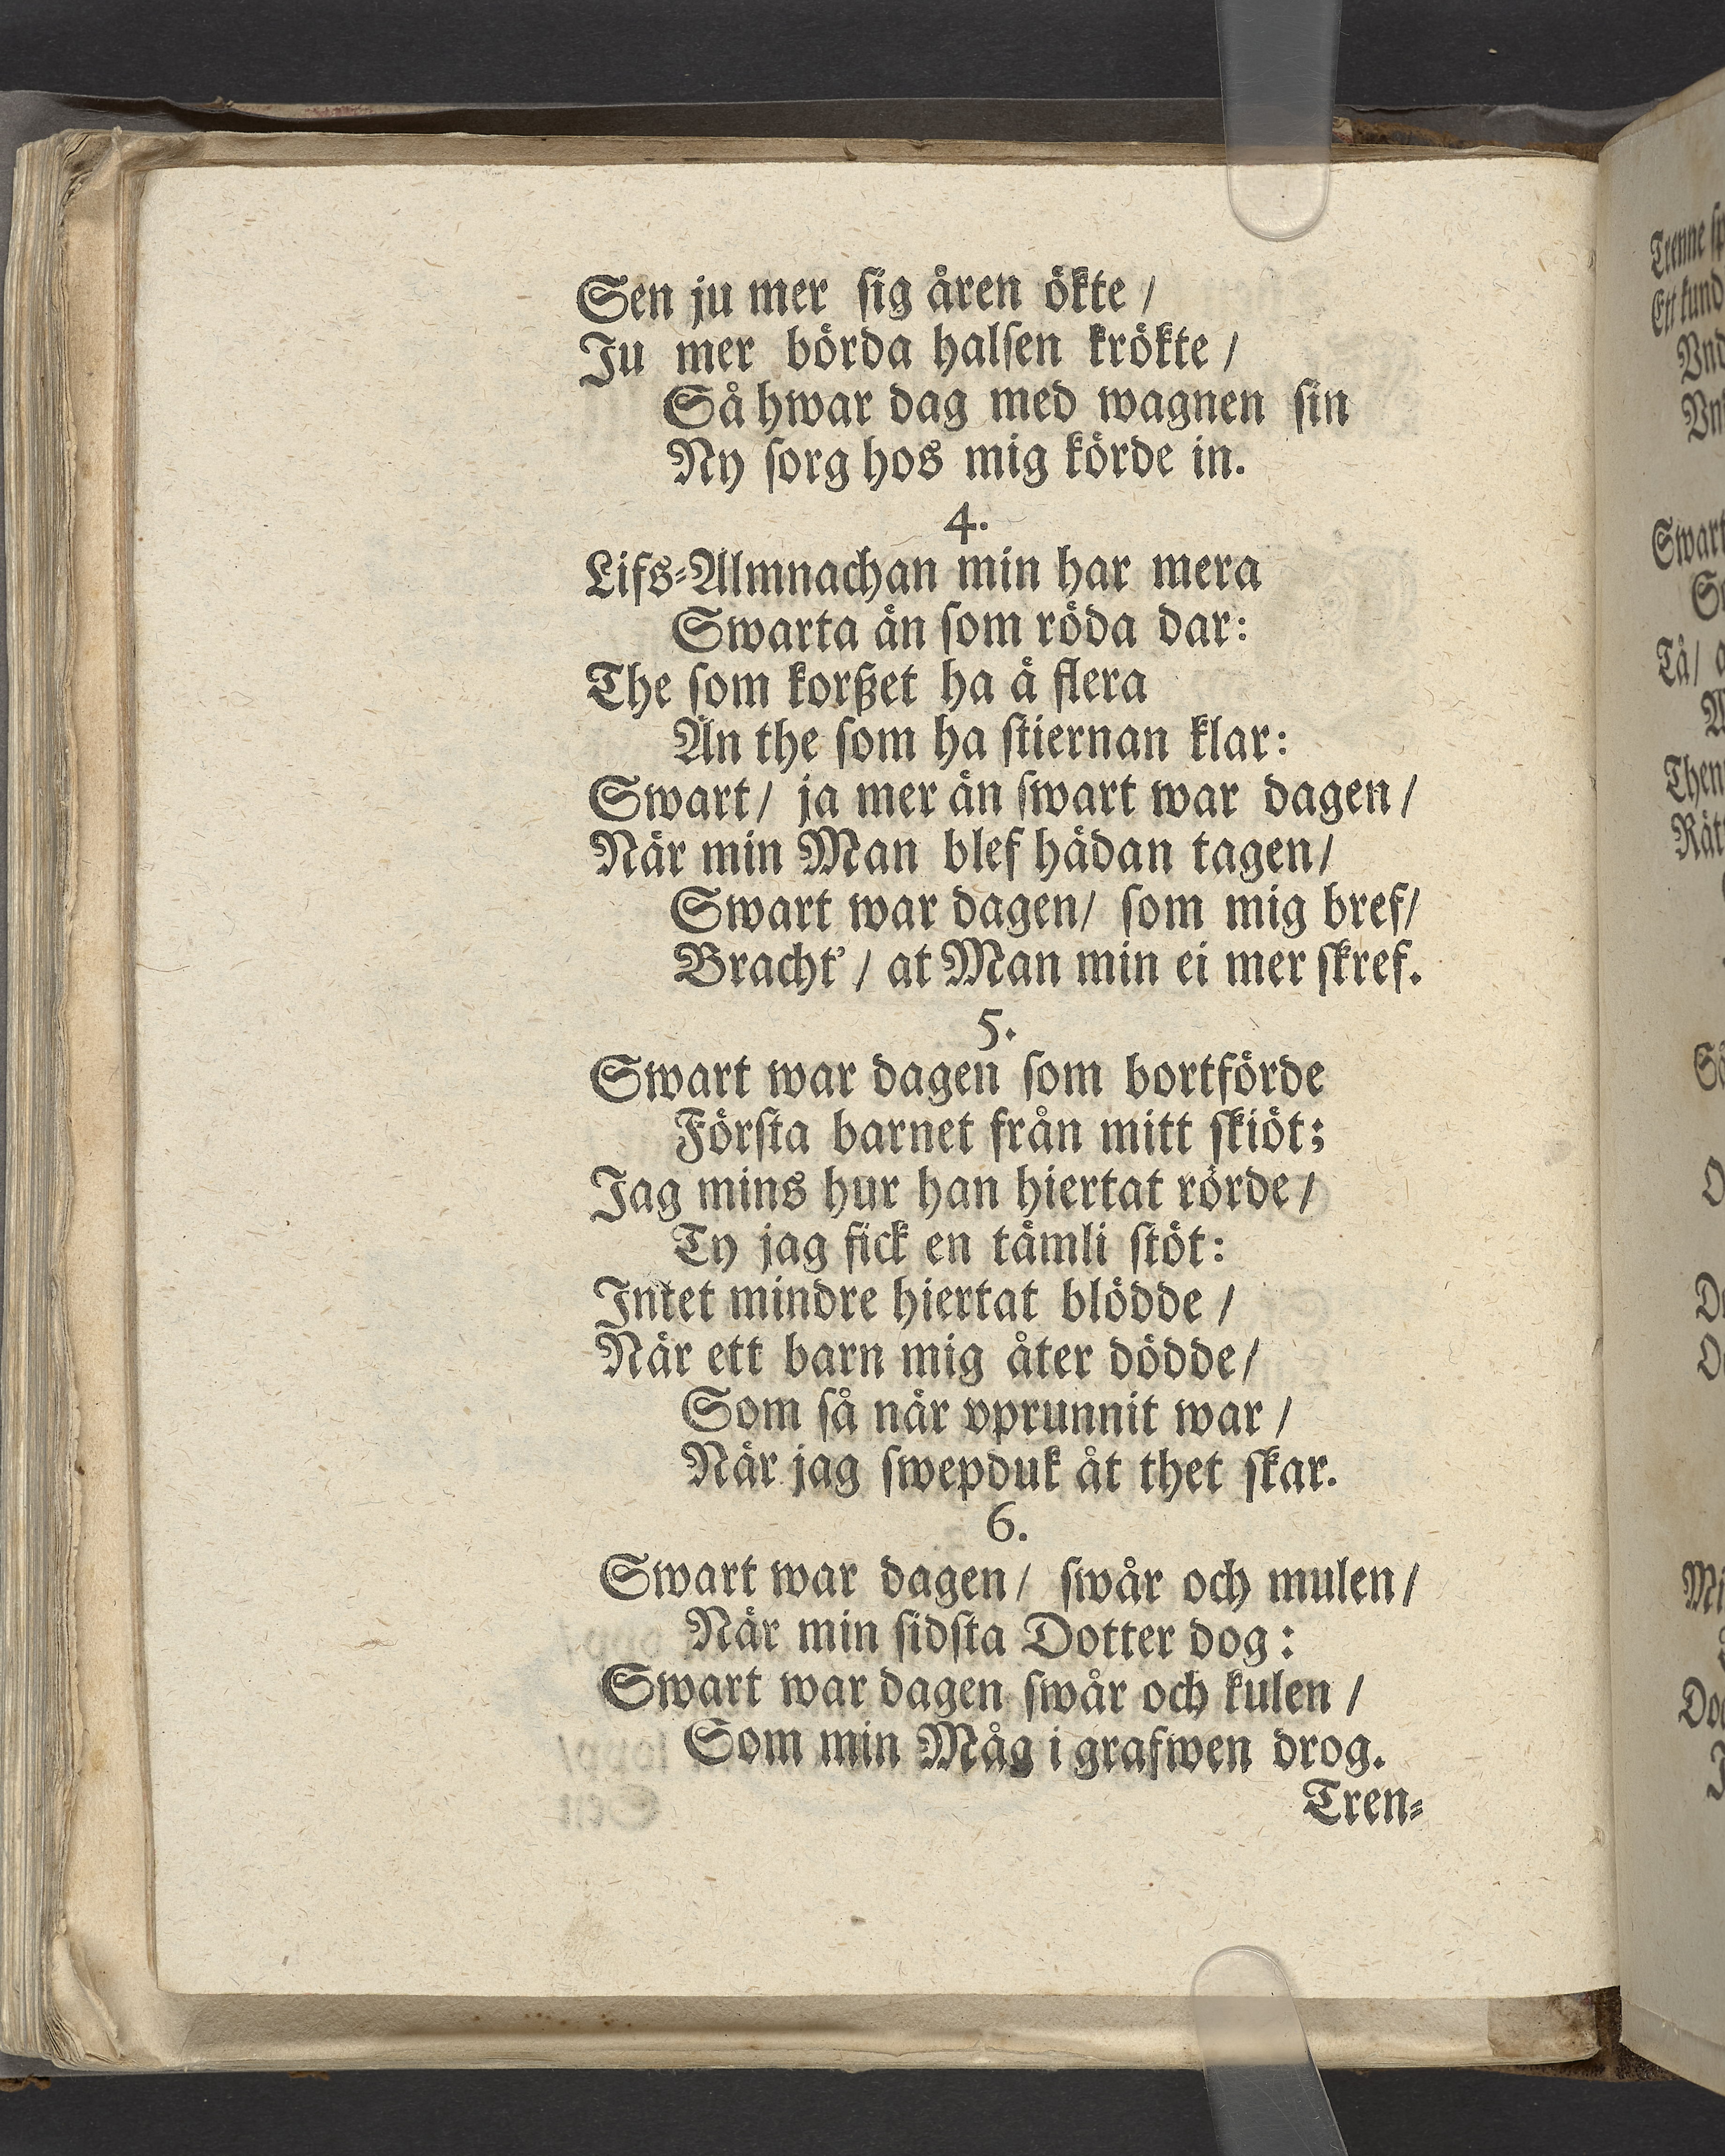 Sen ju mer sig åren ökte /
Ju mer börda halsen krökte /
Så hwar dag med wagnen sin
Ny sorg hos mig körde in.
4.
Lifs-Almnachan min har mera
Swarta än som röda dar:
The som korßet ha ä flera
Än the som ha stiernan klar:
Swart / ja mer än swart war dagen /
När min Man blef hädan tagen /
Swart war dagen / som mig bref /
Bracht' / at Man min ei mer skref.
5.
Swart war dagen som bortförde
Första barnet från mitt skiöt;
Jag mins hur han hiertat rörde /
Ty jag fick en tämli stöt:
Intet mindre hiertat blödde /
När ett barn mig åter dödde /
Som så när vprunnit war /
När jag swepduk åt thet skar.
6.
Swart war dagen / swår och mulen /
När min sidsta Dotter dog:
Swart war dagen swår och kulen /
Som min Måg i grafwen drog.
Tren-
Trenne
Ett
Swart
Tå /